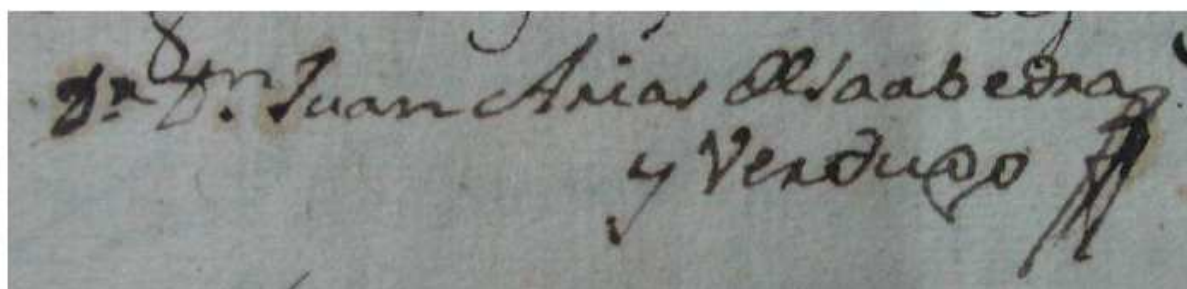 Dr. Dn. Juan Arias de Saabedra
y Verdugo